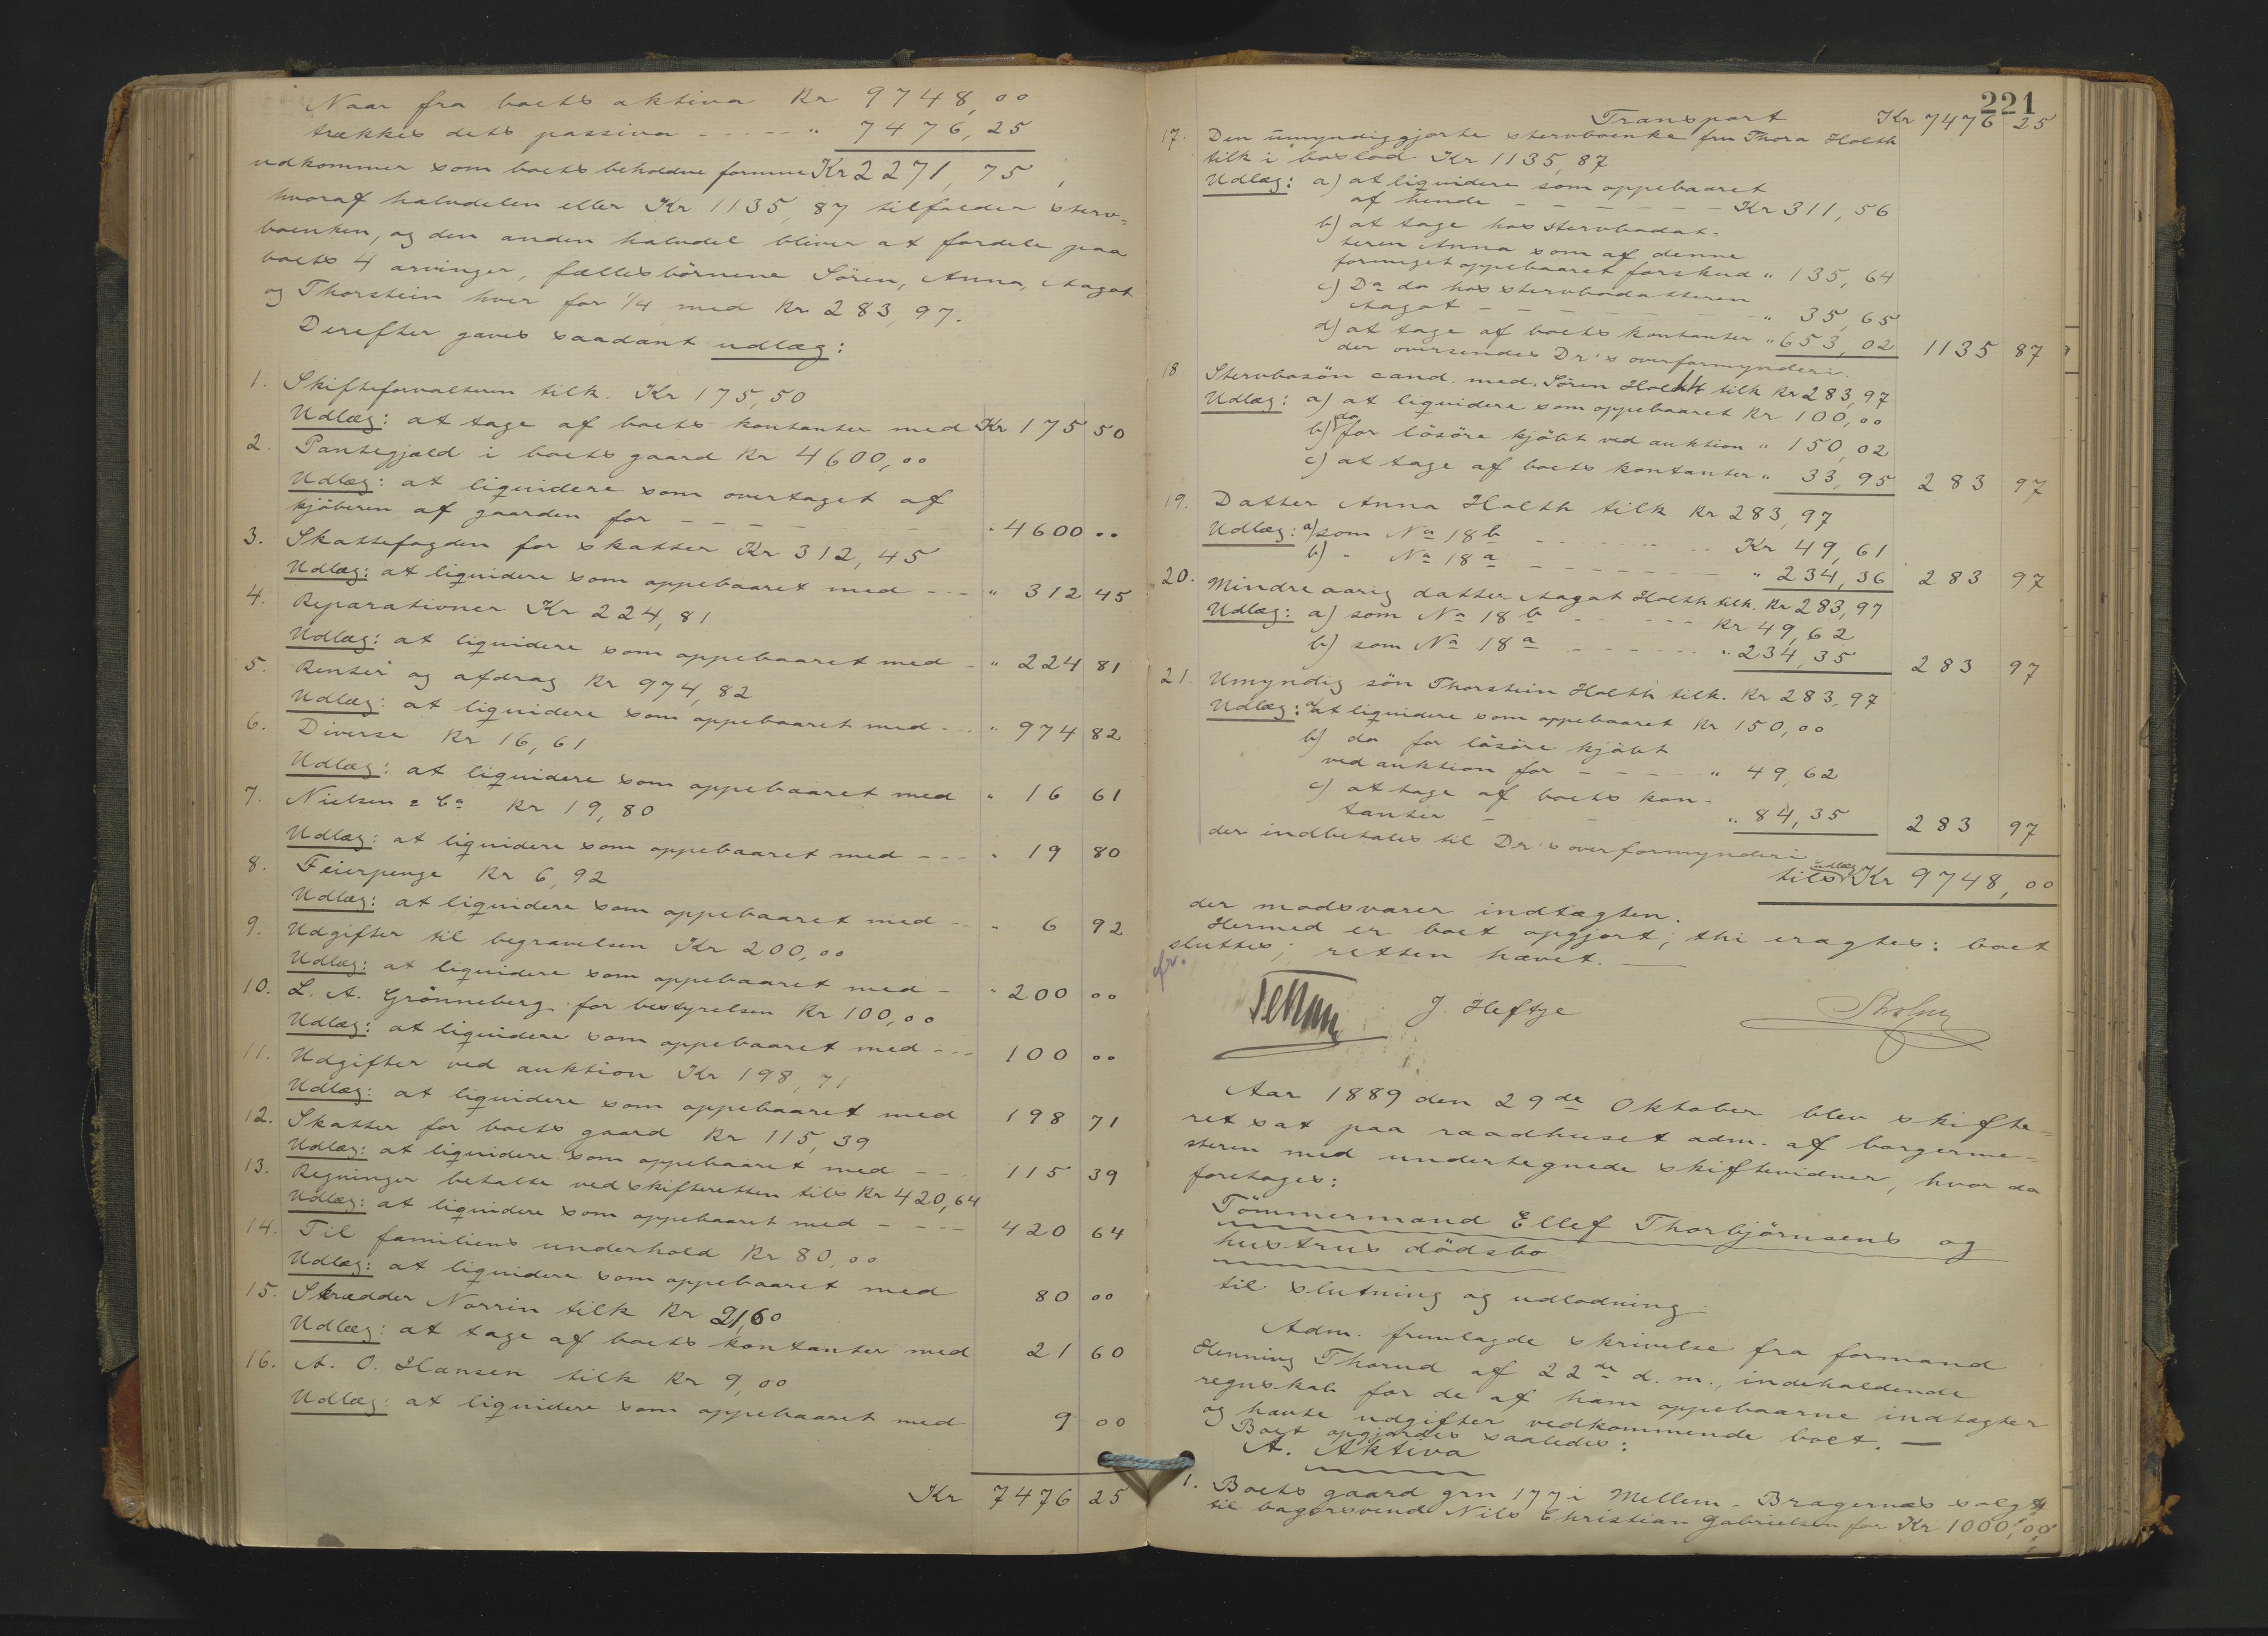 Naar fra boets aktiva Kr 9748,00
trækkes dets passiva - - - - - " 7476,25
udkommer som boets beholdne formue Kr 2271,75,
hvoraf halvdelen eller Kr 1135,87 tilfalder sterv=
boenken, og den anden halvdel bliver at fordele paa
boets 4 arvinger, fællesbörnene Sören, Anna, Aagot
og Thorstein hver for 1/4 med Kr 283,97.
Derefter gaves saadant udlæg:
1. Skifteforvalteren tilk. Kr 175,50
Udlæg: at tage af boets kontanter med Kr 175 50
2. Pantegjæld i boets gaard Kr 4600,00
Udlæg: at liquidere som overtaget af
kjöberen af gaarden for - - - - " 4600 00
3. Skattefogden for skatter Kr 312,45
Udlæg: at liquidere som oppebaaret med - - - " 312 45
4. Reparationer Kr 224,81
Udlæg: at liquidere som oppebaaret med - " 224 81
5. Renter og afdrag Kr 974,82
Udlæg: at liquidere som oppebaaret med - - " 974 82
6. Diverse Kr 16,61
Udlæg: at liquidere som oppebaaret med " 16 61
7. Nielsen & Co Kr 19,80
Udlæg: at liquidere som oppebaaret med - - - " 19 80
8. Feierpenge Kr 6,92
Udlæg: at liquidere som oppebaaret med - - " 6 92
9. Udgifter til begravelsen Kr 200,00
Udlæg: at liquidere som oppebaaret med - " 200 00
10. L. A. Grönneberg for bestyrelsen Kr 100,00
Udlæg: at liquidere som oppebaaret med - - - 100 00
11. Udgifter ved auktion Kr 198,71
Udlæg: at liquidere som oppebaaret med 198 71
12. Skatter for boets gaard Kr 115,39
Udlæg: at liquidere som oppebaaret med - - 115 39
13. Regninger betalte ved skifteretten tils Kr 420,64
Udlæg: at liquidere som oppebaaret med - - - - 420 64
14. Til familiens underhold Kr 80,00
Udlæg: at liquidere som oppebaaret med 80 00
15. Skrædder Norrin tilk Kr 21,60
Udlæg: at tage af boets kontanter med 21 60
16. A. O. Hansen tilk Kr 9,00
Udlæg: at liquidere som oppebaaret med 9 00
Kr 7476 25
221
Transport Kr 7476 25
17. Den umyndiggjorte stervboenke fru Thora Holth
tilk i boslod Kr 1135,87
Udlæg: a) at liquidere som oppebaaret
af hende - - - - - - - Kr 311,56
b) at tage hos stervbodat-
teren Anna som af denne
formeget oppebaaret forskud " 135,64
c) Do do hos stervbodatteren
Aagot - - - - - - - " 35,65
d) at tage af boets kontanter " 653,02 1135 87
der oversendes Dr's overformynderi.
18. Stervbosön cand. med. Sören Holth tilk Kr 283,97
Udlæg: a) at liquidere som oppebaaret Kr 100,00
b) do for lösöre kjöbt ved auktion " 150,02
c) at tage af boets kontanter " 33,95 283 97
19. Datter Anna Holth tilk Kr 283,97
Udlæg: a) som No 18 b - - - - Kr 49,61
b) " No 18 a - - - - - " 234,36 283 97
20. Mindreaarig datter Aagot Holth tilk. Kr 283,97
Udlæg: a) som No 18 b - - - - Kr 49,62
b) som No 18 a - - - - - " 234,35 283 97
21. Umyndig sön Thorstein Holth tilk. Kr 283,97
Udlæg: a) at liquidere som oppebaaret Kr 150,00
b) do for lösöre kjöbt
ved auktion for - - - - " 49,62
c) at tage af boets kon-
tanter - - " 84,35 283 97
der indbetales til Dr's overformynderi
tils udlæg Kr 9748,00
der modsvarer indtægten.
Hermed er boet opgjort; thi eragtes: boet
sluttes; retten hævet. —
J. Heftye
Aar 1889 den 29de Oktober blev skifte=
ret sat paa raadhuset adm. af borgerme=
steren med undertegnede skiftevidner, hvor da
foretoges:
Tömmermand Ellef Thorbjörnsens og
hustrus dödsbo
til slutning og udlodning.
Adm. fremlagde skrivelse fra formand
Henning Thorud af 22de d. m., indeholdende
regnskab for de af ham oppebaarne indtægter
og havte udgifter vedkommende boet. —
Boet opgjordes saaledes:
A. Aktiva
1. Boets gaard grn 177 i Mellem-Bragernæs solgt
til bagersvend Nils Christian Gabrielsen for Kr 1000,00